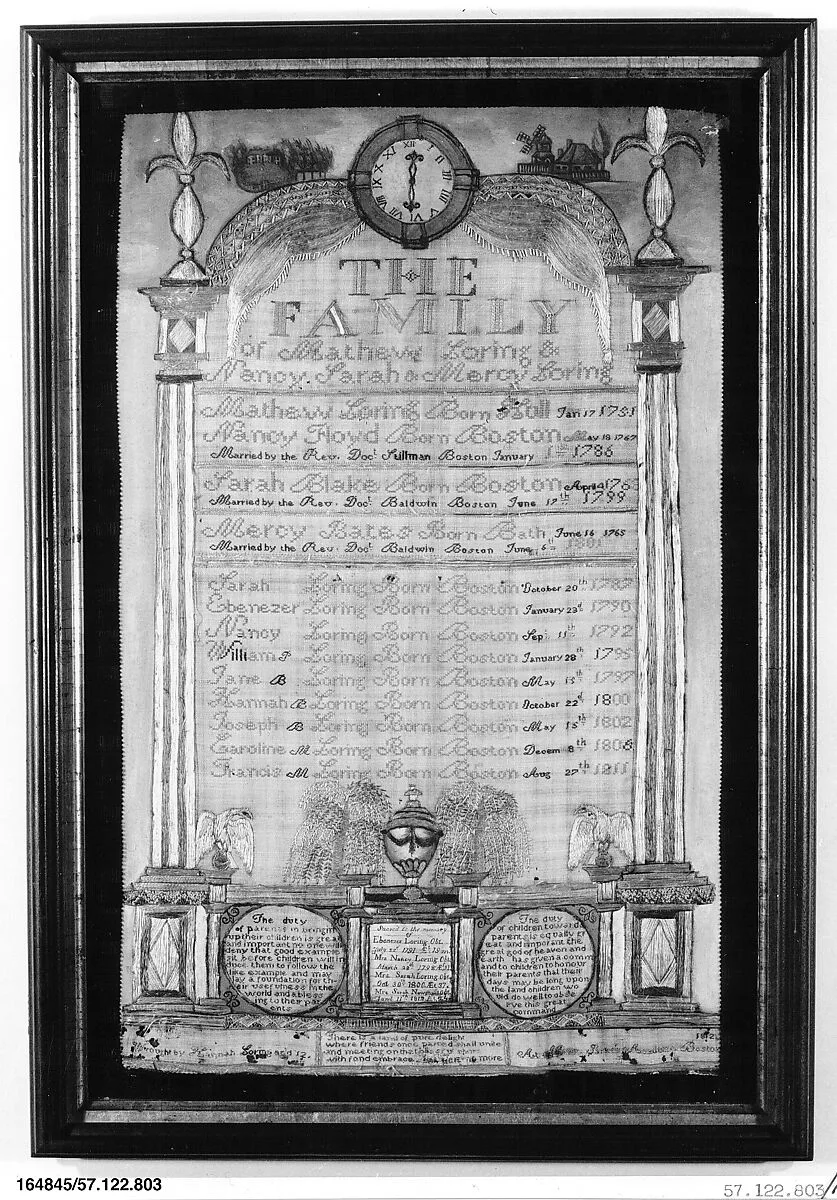 XII I II III IV V VI VII VIII IX X XI
THE
FAMILY
of Mathew Loring &
Nancy, Sarah & Mercy Loring
Mathew Loring Born Hull Jan 17 1751
Nancy Floyd Born Boston May 18 1767
Married by the Rev. Doct Stillman Boston January 1786
Sarah Blake Born Boston April 4 176
Married by the Rev. Doct Baldwin Boston June 17th 1799
Mercy Bates Born Bath June 16 1765
Married by the Rev. Doct Baldwin Boston June 6th 1801
Sarah Loring Born Boston October 20th 1787
Ebenezer Loring Born Boston January 23d 1790
Nancy Loring Born Boston Sep 11th 1792
William P Loring Born Boston January 28th 1795
Jane B Loring Born Boston May 13th 1797
Hannah B Loring Born Boston October 22d 1800
Joseph B Loring Born Boston May 15th 1802
Caroline M Loring Born Boston Decem 8th 1806
Francis M Loring Born Boston Aug 27th 1811
The duty
of parents in bringin
up their children is grea
and important no one will
deny that good example
sit before children will in
duce them to follow the
like example and may
lay a foundation for th
eir usefulness in the
world and a bless
ing to their par
ents
Sacred to the memory
of
Ebenezer Loring Obt.
July 1791
Mrs Nancy Loring Ob
March 1798
Mrs. Sarah Loring Ob
Oct 30 1800 Æ 37
Mrs Sarah
1812
The duty
of children towards
parents is equally gr
eat and important the
great god of heaven and
earth has given a comm
and to children to honour
their parents that their
days may be long upon
the land children wo
uld do well to obse
rve this great
command
Wrought by Hannah Loring aged 12
There is a land of pure delight
where friends once parted shall unite
and meeting on that
with fond embrace no more
1812
At Boston
164845/57.122.803
57.122.803